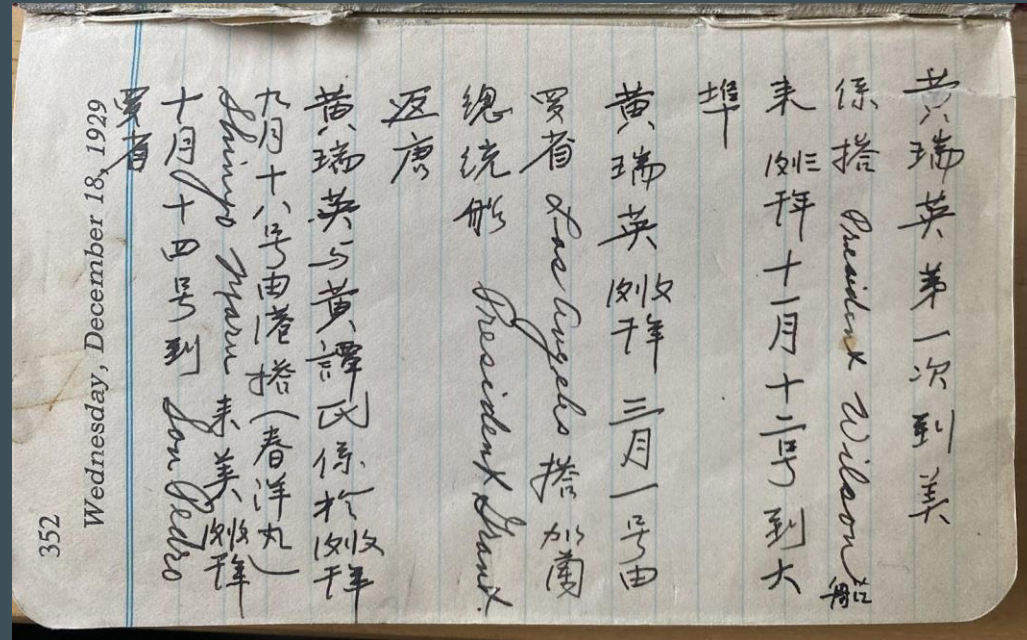 352
Wednesday, December 18, 1929
黄瑞英第一次到美
係搭 President Wilson 船
来 年十一月十二号到大
埠
黄瑞英 年三月一号由
罗省 Los Angeles 搭加蘭
總统船 President Grant.
返唐
黄瑞英与黄譚氏係於 年
九月十八号由港搭(春洋丸)
Shinyo Maru 来美 年
十月十四号到 San Pedro
罗省